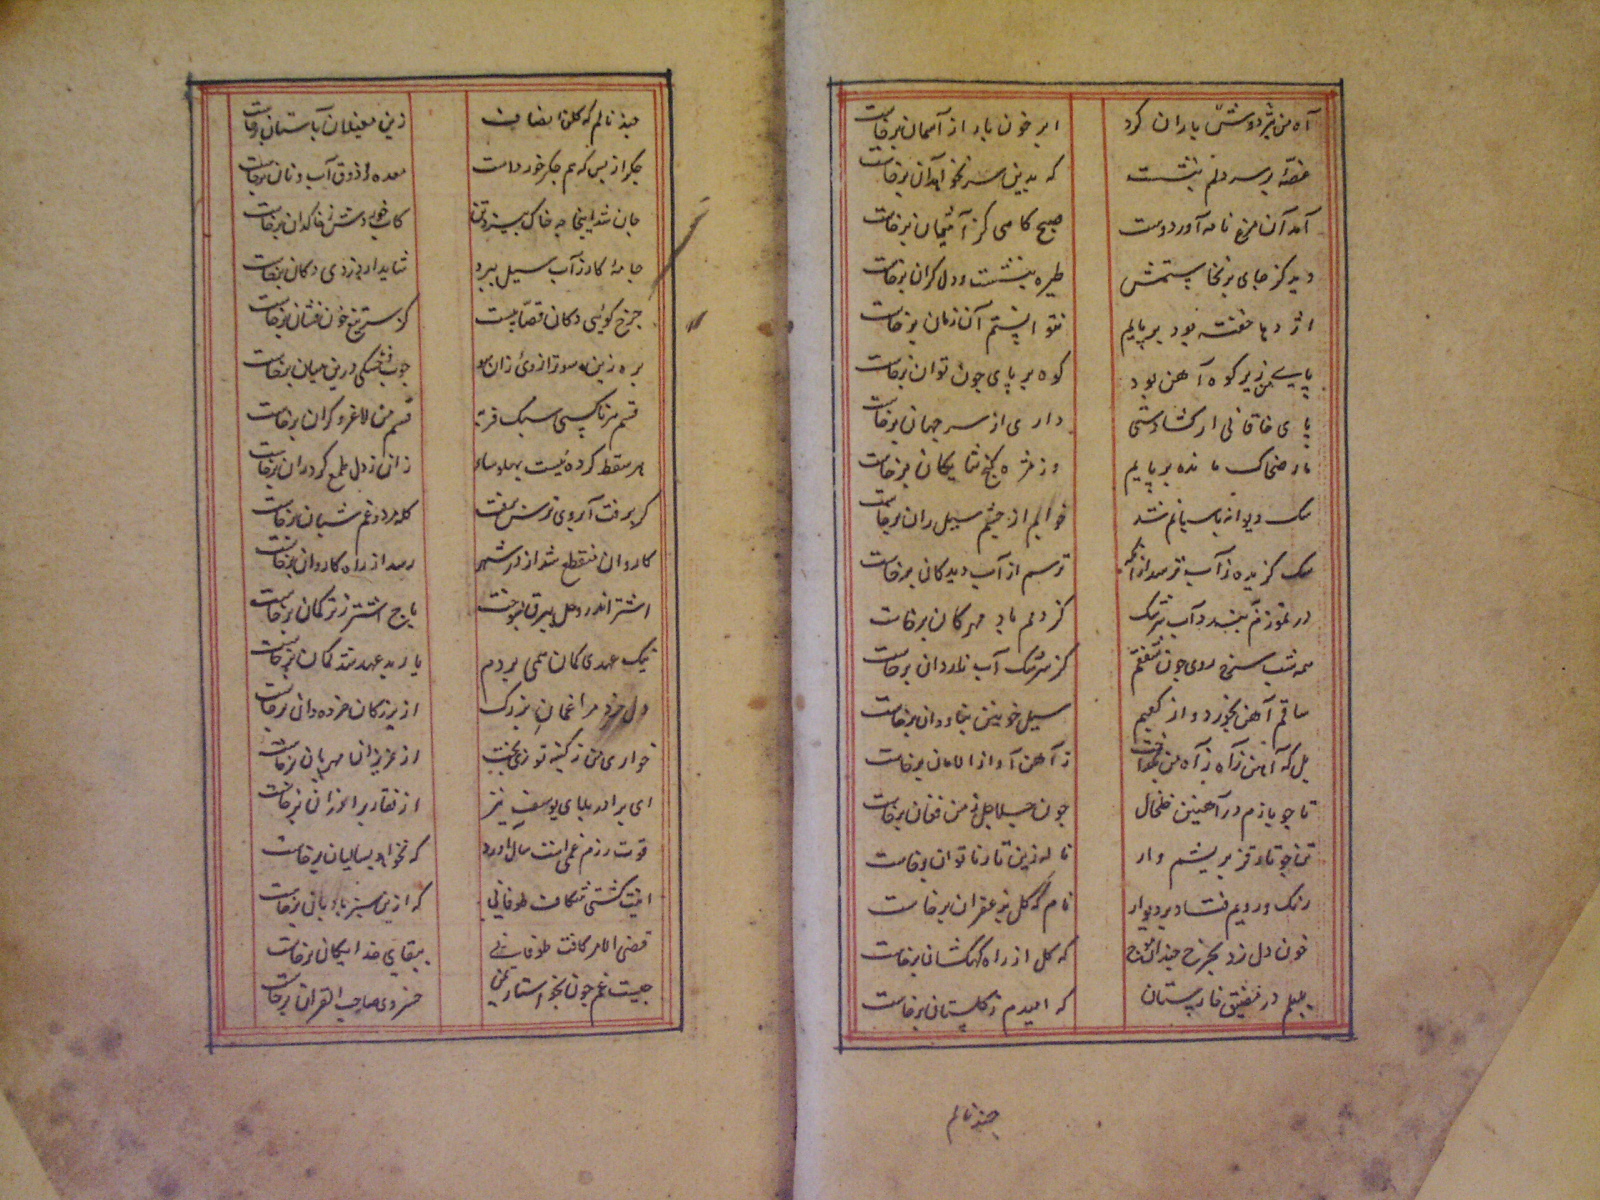 آه من شب دوش تیر باران کرد ابر خون بار از آسمان برخاست
غصهٔ بر سر دلم بنشست که بدین سر نخواهد آن برخاست
آمد آن مرغ نامه آور دوست صبح کاهی کز آشیان برخاست
دید کز جای برنخاستمش طیره بنشست و دل کران برخاست
اژدها خفته بود بر پایم نتوانستم آن زمان برخاست
پای من زیر کوه آهن بود کوه بر پای چون توان برخاست
پای خاقانی ار کشادستی داری از سر جهان برخاست
مار ضحاک مانده بر پایم وز مژه کنج شایکان برخاست
سک دیوانه پاسبانم شد خوابم از چشم سیل ران برخاست
سک کزیده ز آب ترسد از آن ترسم از آب دیدکانی برخاست
در تموزم ببندد آب سرشک کز دلم باد مهرکان برخاست
همه شب سرخ روی چون شفقم کز سرشک آب ناردان برخاست
ساقم آهن بخورد و از کعبم سیل خونین بناودان برخاست
بل که آهن ز آه من بکداخت ز آهن آواز الامان برخاست
تا چو بازم در آهنین خلخال چون جلاجل ز من فغان برخاست
تن چو تار قز بریشم وار ناله زین تار ناتوان برخاست
رنک رویم فتاد بر دیوار نام که کل بزعفران برخاست
خون دل زد بچرخ چندان موج که کل از راه کهکشان برخاست
بلبلم در مضیق خارستان که امیدم ز کلستان برخاست
چند نالم
چند نالم که بلبل انصاف زین مغیلان باستان برخاست
جکر از بس که هم جکر خورد است معده را ذوق آب و نان برخاست
جان شد اینجا چه خاک بیزد تن کابخوردش ز خاکدان برخاست
جامهٔ کازر آب سیل ببرد شاید ار درزی ز دکان برخاست
چرخ کوئی دکان قصابیست کز سر تیغ خون فشان برخاست
بره زین سو ترازوی زان سو چرب و خشکی درین میان برخاست
قسم هر ناکسی سبک فربه قسم من لاغر و کران برخاست
هر سقط کردنیست پهلو سای زان ز دل طمع کرد ران برخاست
کر برفت آبروی ترس برفت کله مرد و غم شبان برخاست
کاروان منقطع شد از در شهر رصد از راه کاروان برخاست
اشتر اندر وحل ببرق بسوخت باج اشتر ز ترکمان برخاست
نیک عهدی کمان همی بردم یار بد عهد شد کمان برخاست
دل خرد مرا غمان بزرک از بزرکان خرده دان برخاست
خواری من ز کینه توزی بخت از عزیزان مهربان برخاست
ای برادر بلای یوسف نیز از نفاق برادران برخاست
قوت روزم غمی است سال آورد که نخواهد بسالیان برخاست
اینت کشتی شکاف طوفانی که ازین سبز بادبان برخاست
قضی الامر کافت طوفان ببقای خدایکان برخاست
چیست غم چون بخواستاری من خسرو صاحب القران برخاست